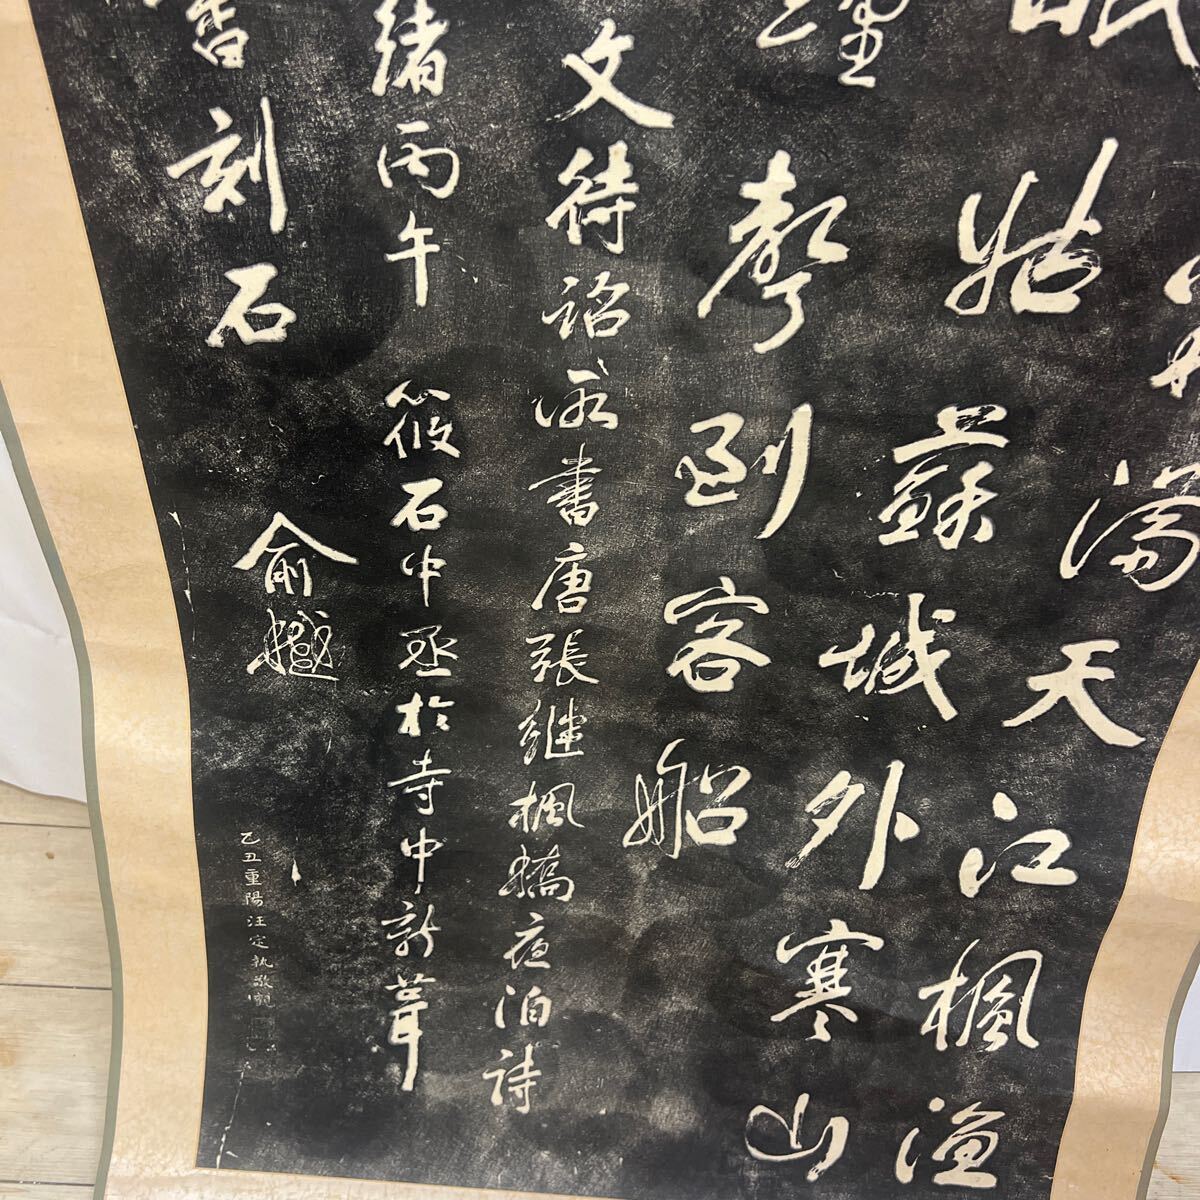 霜滿天江楓漁
眠姑蘇城外寒山
鐘聲到客船
文待詔所書唐張繼楓橋夜泊詩
緒丙午筱石中丞於寺中新葺
書刻石 俞樾
乙丑重陽汪定執敬觀